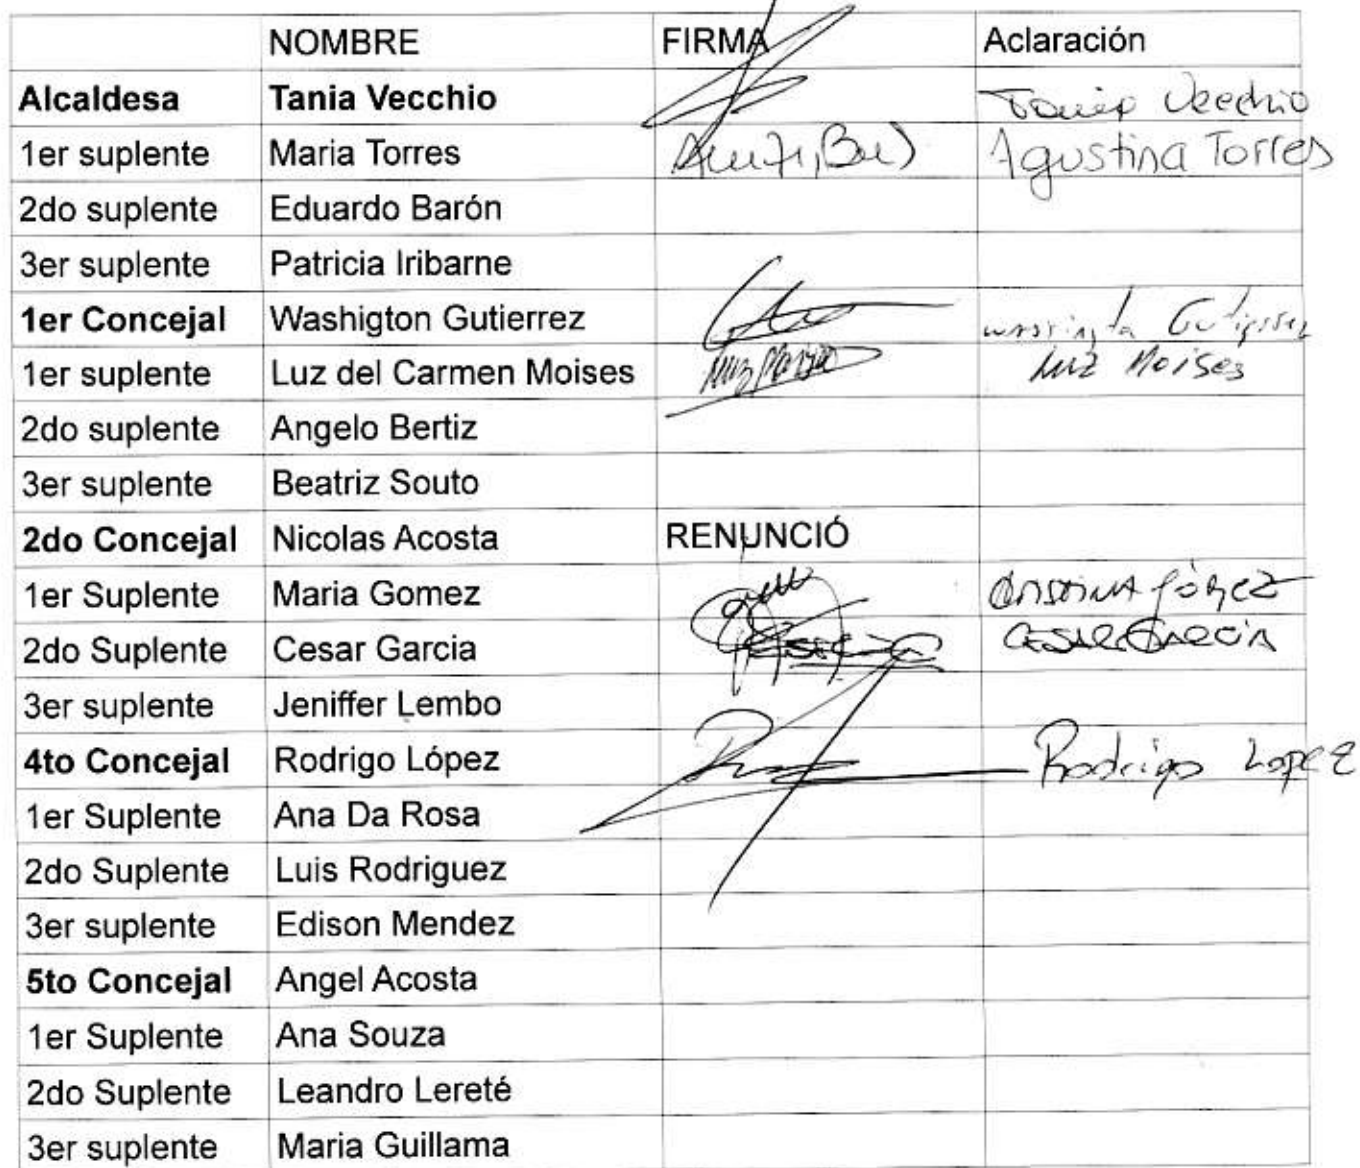 NOMBRE FIRMA Aclaración
Alcaldesa Tania Vecchio Tania Vecchio
1er suplente Maria Torres Agustina Torres
2do suplente Eduardo Barón
3er suplente Patricia Iribarne
1er Concejal Washigton Gutierrez Gutierrez
1er suplente Luz del Carmen Moises Luz Moises
2do suplente Angelo Bertiz
3er suplente Beatriz Souto
2do Concejal Nicolas Acosta RENUNCIÓ
1er Suplente Maria Gomez Cristina Gómez
2do Suplente Cesar Garcia Cesar García
3er suplente Jeniffer Lembo
4to Concejal Rodrigo López Rodrigo Lopez
1er Suplente Ana Da Rosa
2do Suplente Luis Rodriguez
3er suplente Edison Mendez
5to Concejal Angel Acosta
1er Suplente Ana Souza
2do Suplente Leandro Lereté
3er suplente Maria Guillama